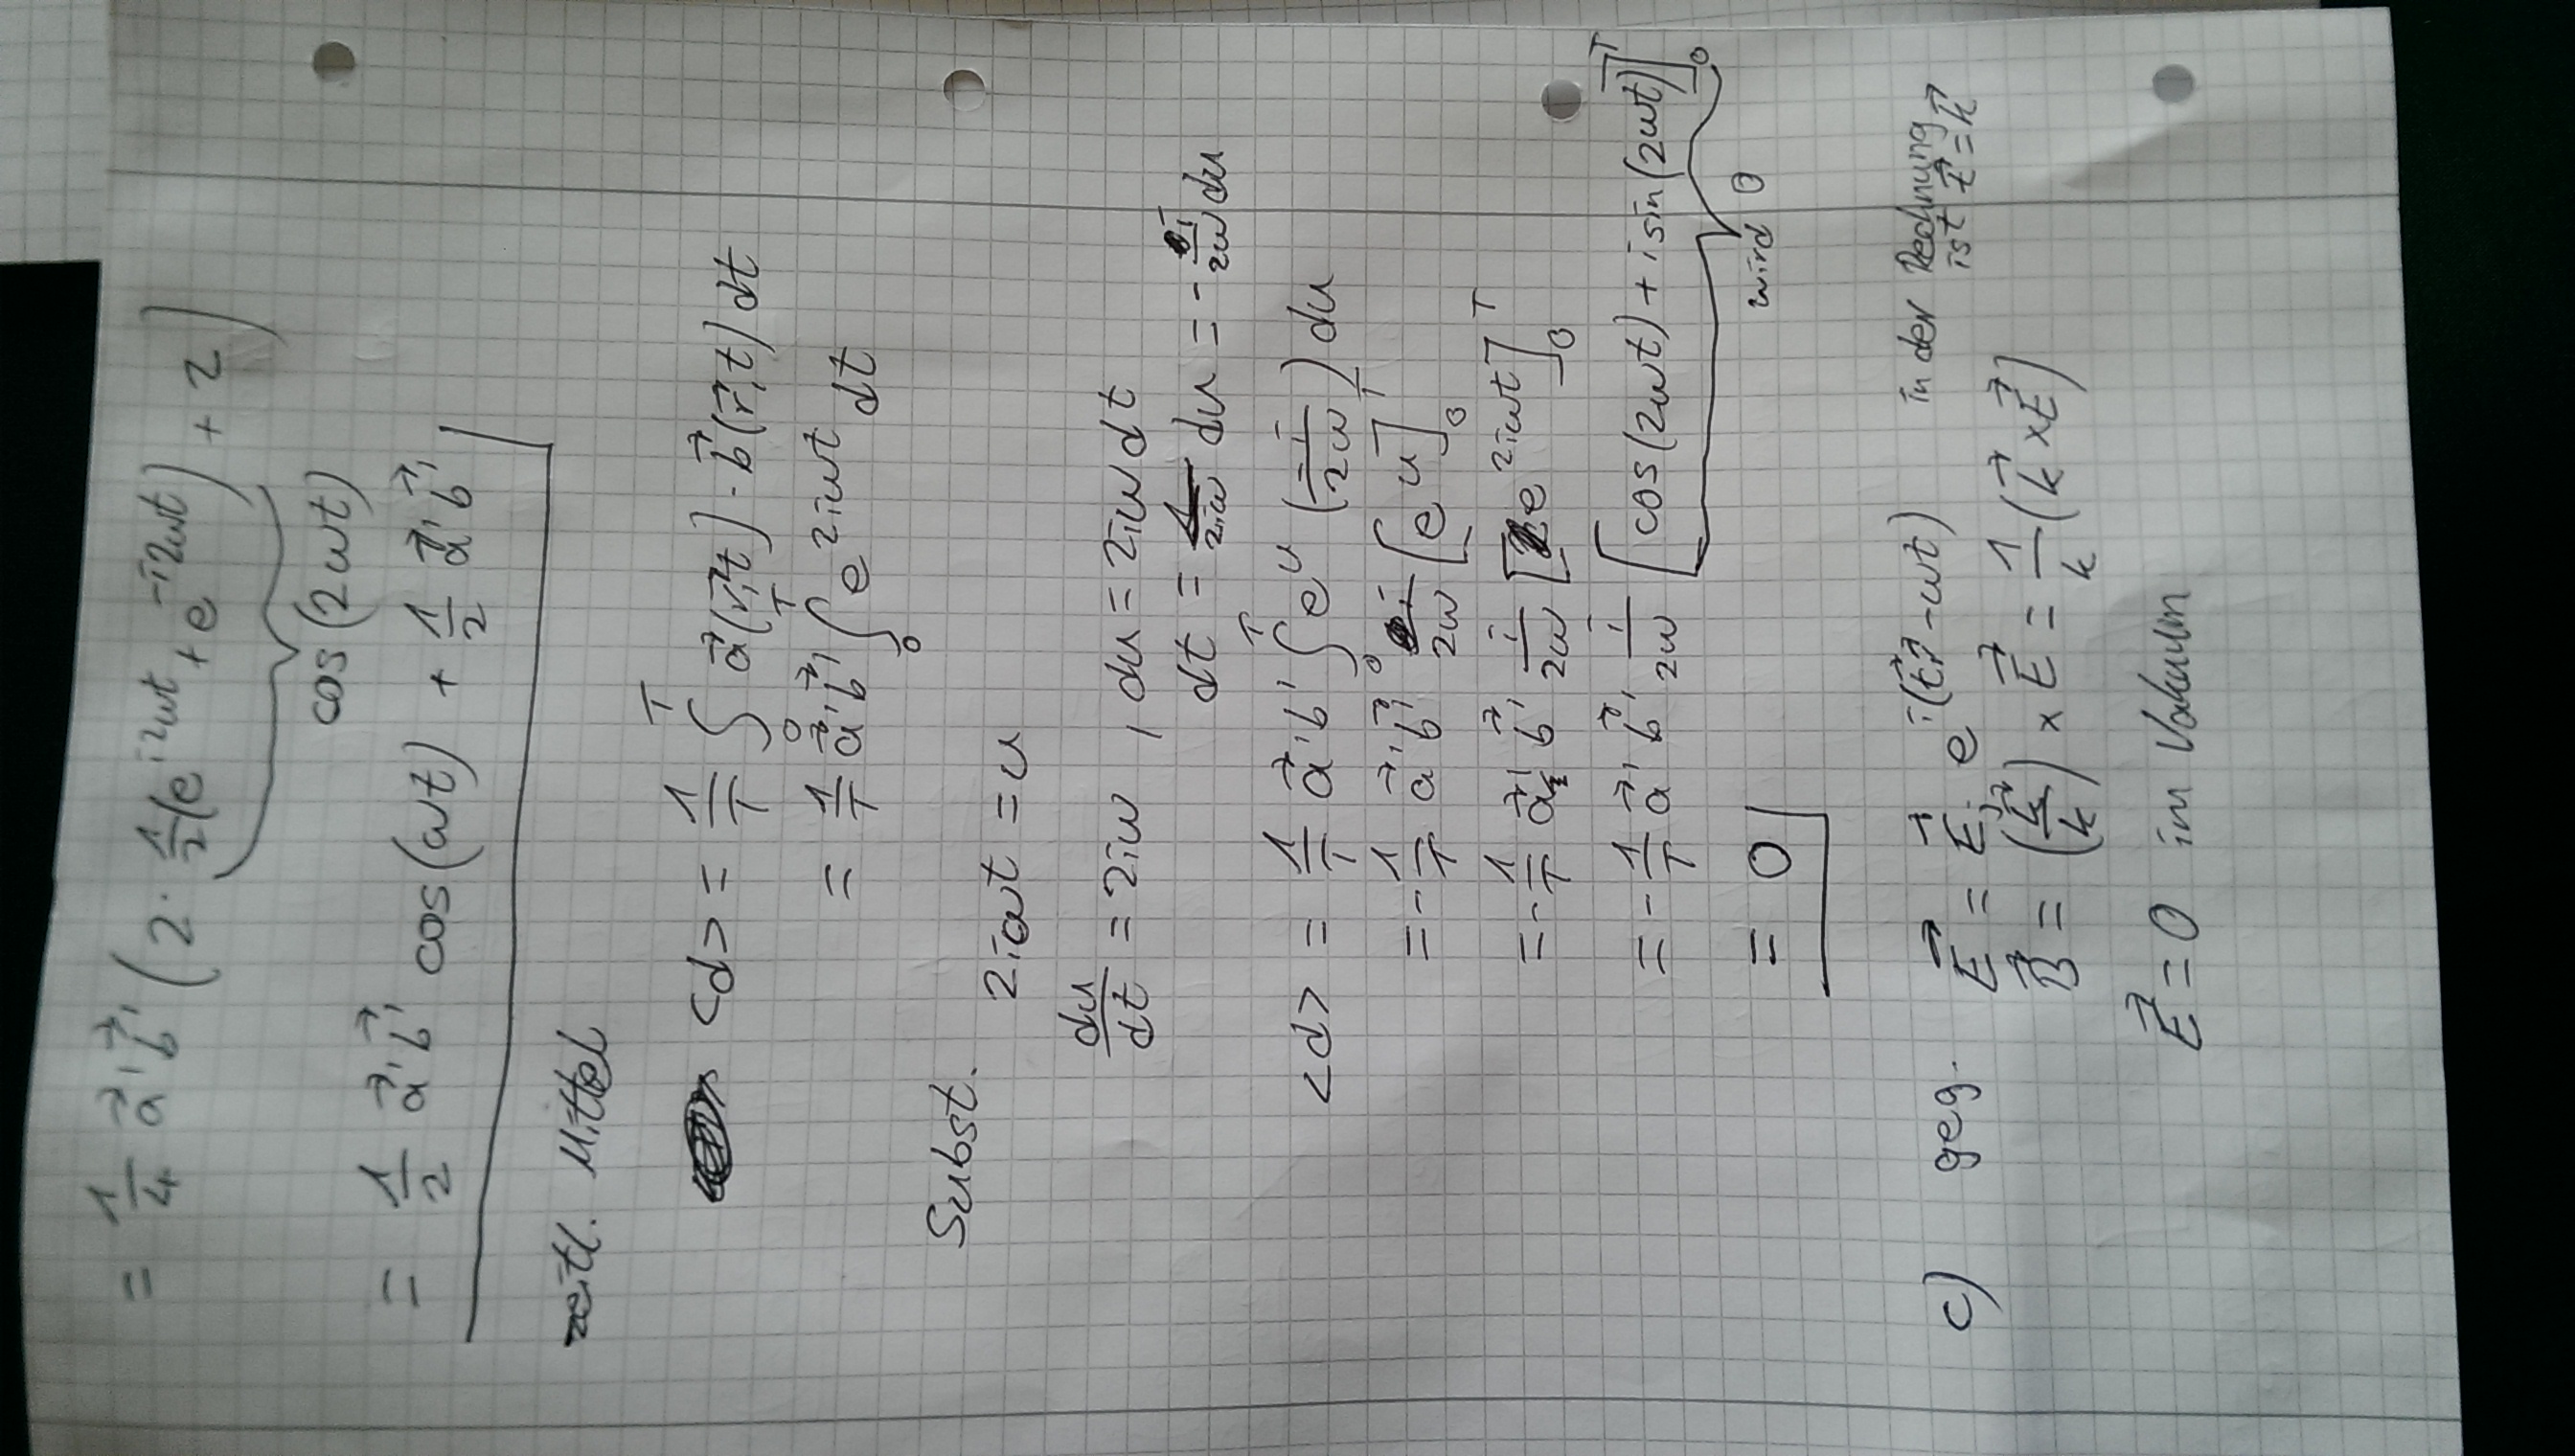 = 1/4 a⃗' b⃗' (2 · 1/2 (e^{i2ωt} + e^{-i2ωt}) + 2)
cos(2ωt)
= 1/2 a⃗' b⃗' cos(ωt) + 1/2 a⃗' b⃗'
zeitl. Mittel
<d> = 1/T ∫_0^T a⃗(r⃗,t) · b⃗(r⃗,t) dt
= 1/T a⃗' b⃗' ∫_0^T e^{2iωt} dt
Subst. 2iωt = u
du/dt = 2iω , du = 2iω dt
dt = 1/2iω du = - i/2ω du
<d> = 1/T a⃗' b⃗' ∫_0^T e^u (-i/2ω) du
= - 1/T a⃗' b⃗' i/2ω [e^u]_0^T
= - 1/T a⃗' b⃗' i/2ω [e^{2iωt}]_0^T
= - 1/T a⃗' b⃗' i/2ω [cos(2ωt) + i sin(2ωt)]_0^T
wird 0
= 0
c) geg. E⃗ = E⃗' · e^{i(k⃗r⃗ - ωt)} in der Rechnung
ist t⃗ = k⃗
B⃗ = (k⃗/k) × E⃗ = 1/k (k⃗ × E⃗)
t⃗ = 0 im Vakuum